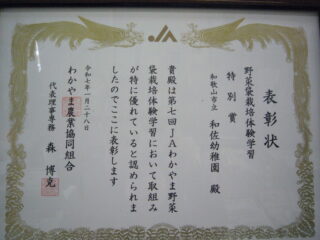 表彰状
野菜袋栽培体験学習
特別賞
和歌山市立 和佐幼稚園 殿
貴殿は第七回JAわかやま野菜
袋栽培体験学習において取組み
が特に優れていると認められま
したのでここに表彰します
令和七年一月二十八日
わかやま農業協同組合
代表理事専務 森 博克